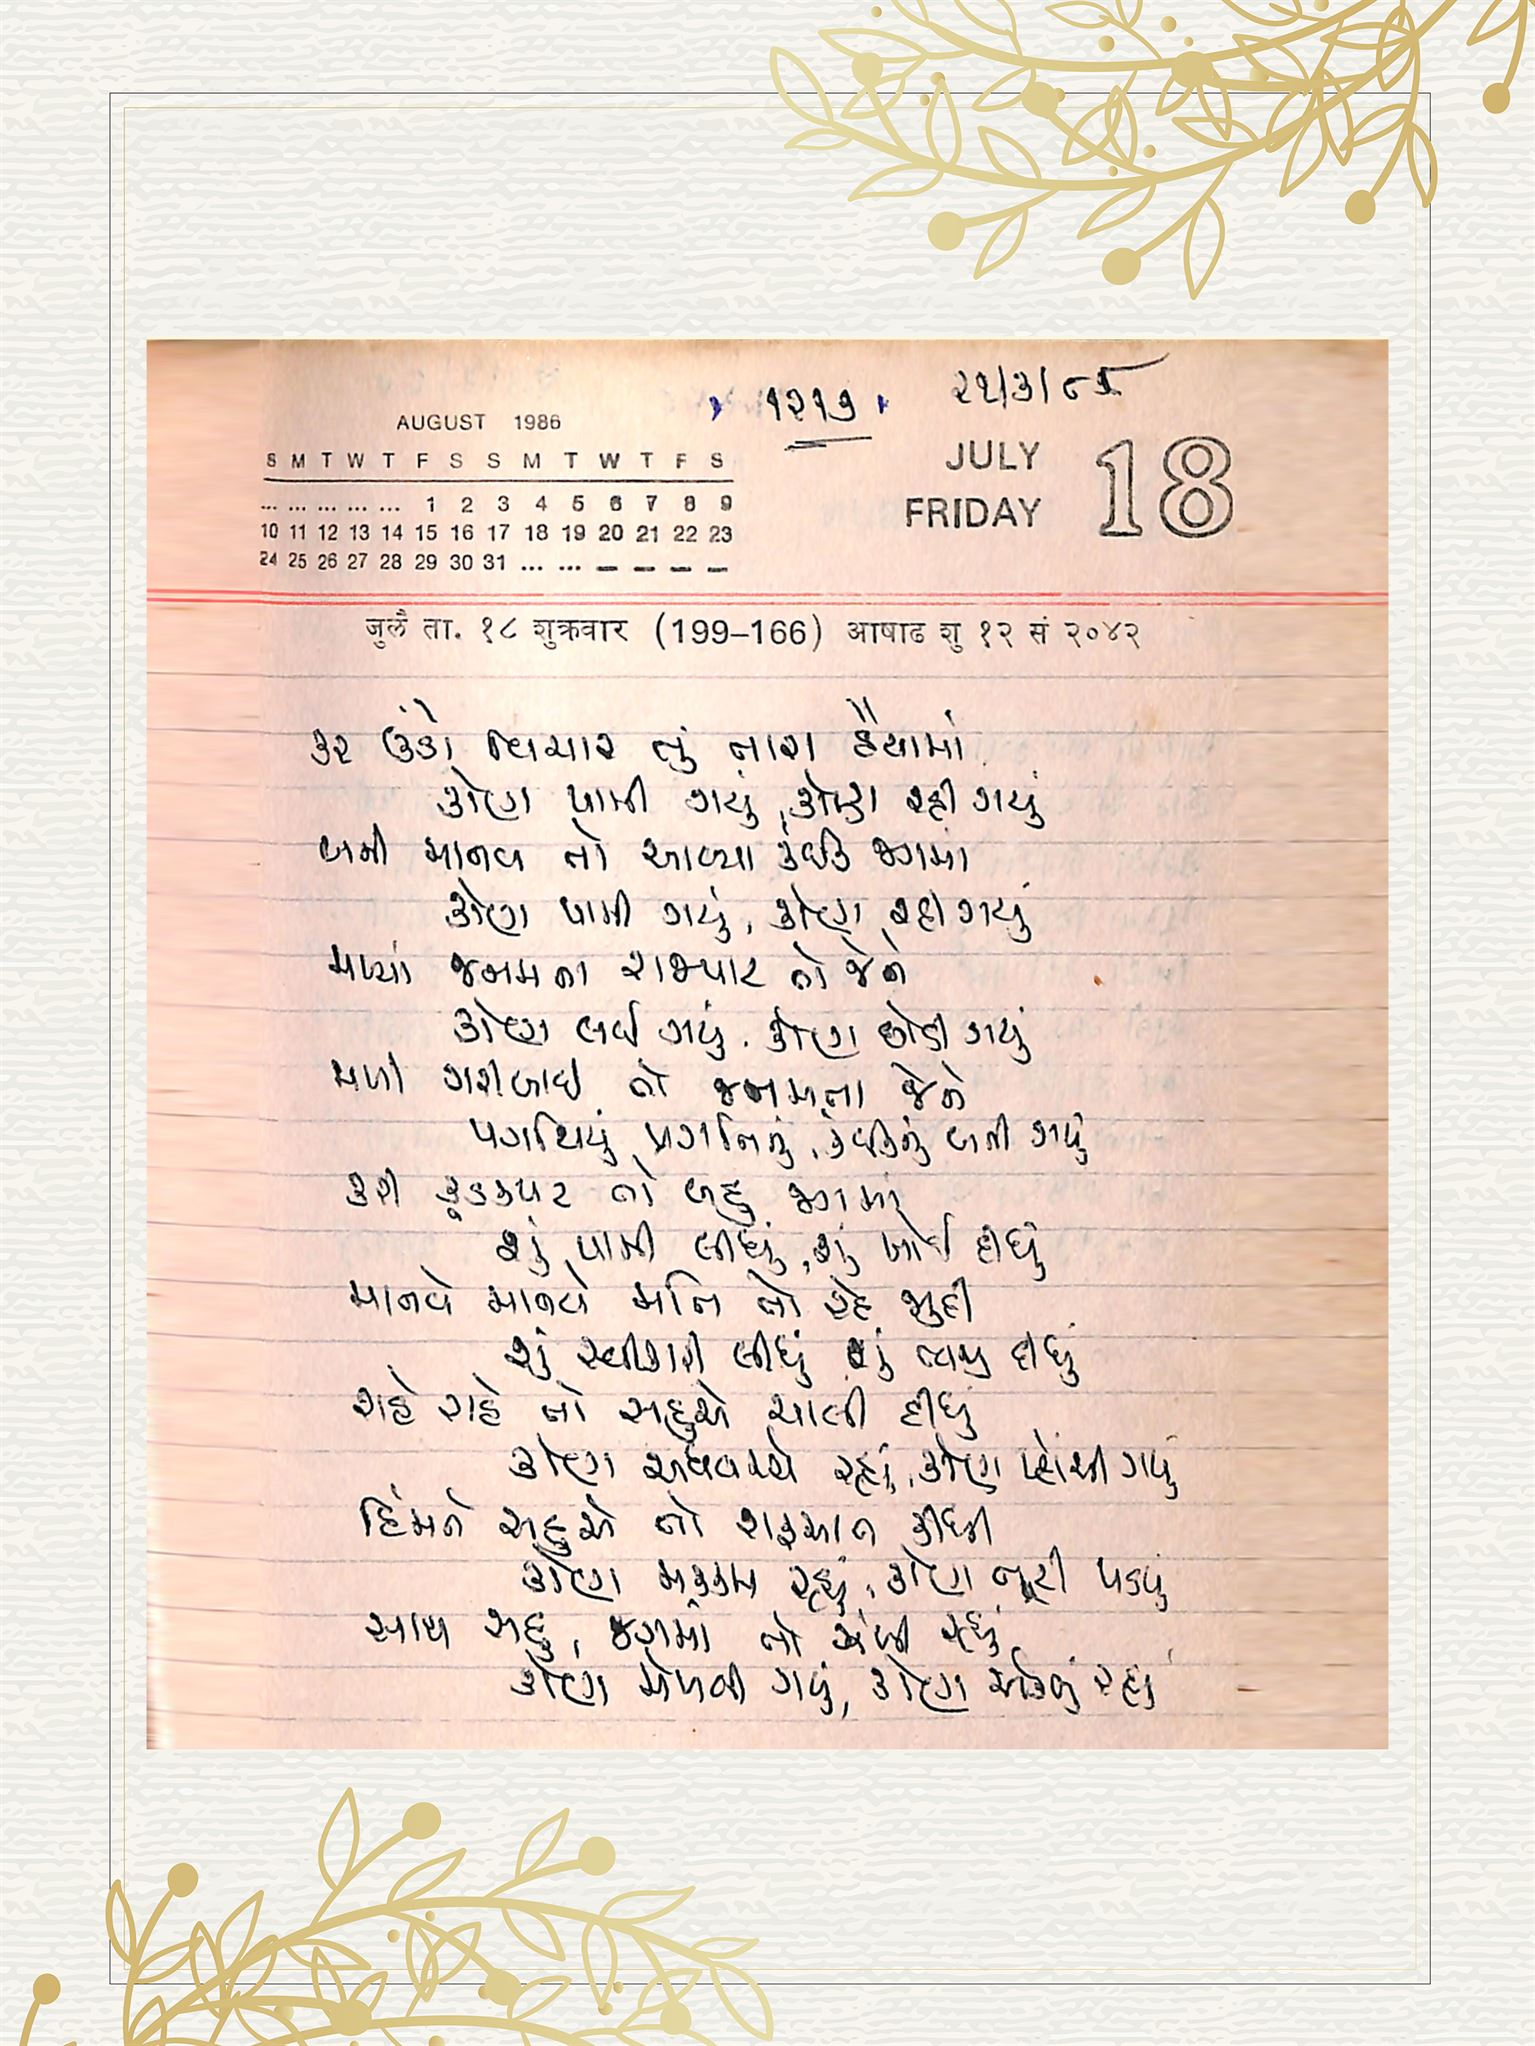 ૧૨૧૭
AUGUST 1986
S M T W T F S S M T W T F S
... ... ... ... ... 1 2 3 4 5 6 7 8 9
10 11 12 13 14 15 16 17 18 19 20 21 22 23
24 25 26 27 28 29 30 31 ... ... — — — —
JULY 18
FRIDAY
जुलै ता. १८ शुक्रवार (199–166) आषाढ शु १२ सं २०४२
કર ઉંડો વિચાર તું તારા હૈયામાં
કોણ પામી ગયું, કોણ રહી ગયું
બની માનવ તો આવ્યા કંઈક જગમાં
કોણ પામી ગયું, કોણ રહી ગયું
મળ્યાં જનમતા રાજપાટ તો જેને
કોણ લઈ ગયું. કોણ છોડી ગયું
મળી ગરીબાઈ તો જનમતા જેને
પગથિયું પ્રગતિનું, કંઈકનું બની ગયું
કરી કૂડકપટ તો બહુ જગમાં
શું પામી લીધું, શું ખોઈ દીધું
માનવે માનવે મતિ તો રહે જુદી
શું સ્વીકારી લીધું શું ત્યજી દીધું
રાહે રાહે તો સહુએ ચાલી દીધું
કોણ અધવચ્ચે રહ્યું, કોણ પ્હોંચી ગયું
હિંમતે સહુએ તો શરૂઆત કીધી
કોણ મક્કમ રહ્યું, કોણ તૂટી પડ્યું
સાથ સહુ, જગમાં તો ઝંખી રહ્યું
કોણ મેળવી ગયું, કોણ એકલું રહ્યું